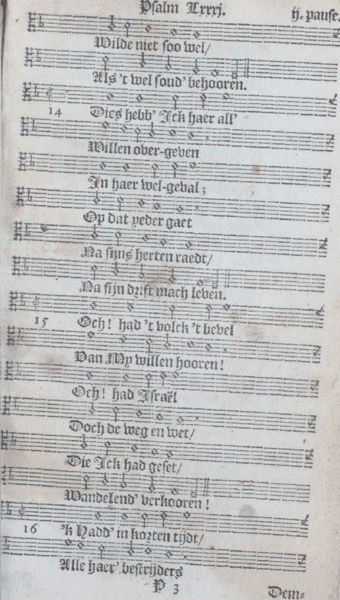 Psalm Lxxxj. ij. pause.
Wilde niet soo wel/
Als 't wel soud' behooren.
14 Dies hebb' Ick haer all'
Willen over-geven
In haer wel-geval;
Op dat yeder gaet
Na sijns herten raedt/
Na sijn drift mach leven.
15 Och! had 't volck 't bevel
Van My willen hooren!
Och! had Israël
Doch de weg en wet/
Die Ick had geset/
Wandelend' verkooren!
16 'k Hadd' in korten tijdt/
Alle haer' bestrijders
P 3 Dem-